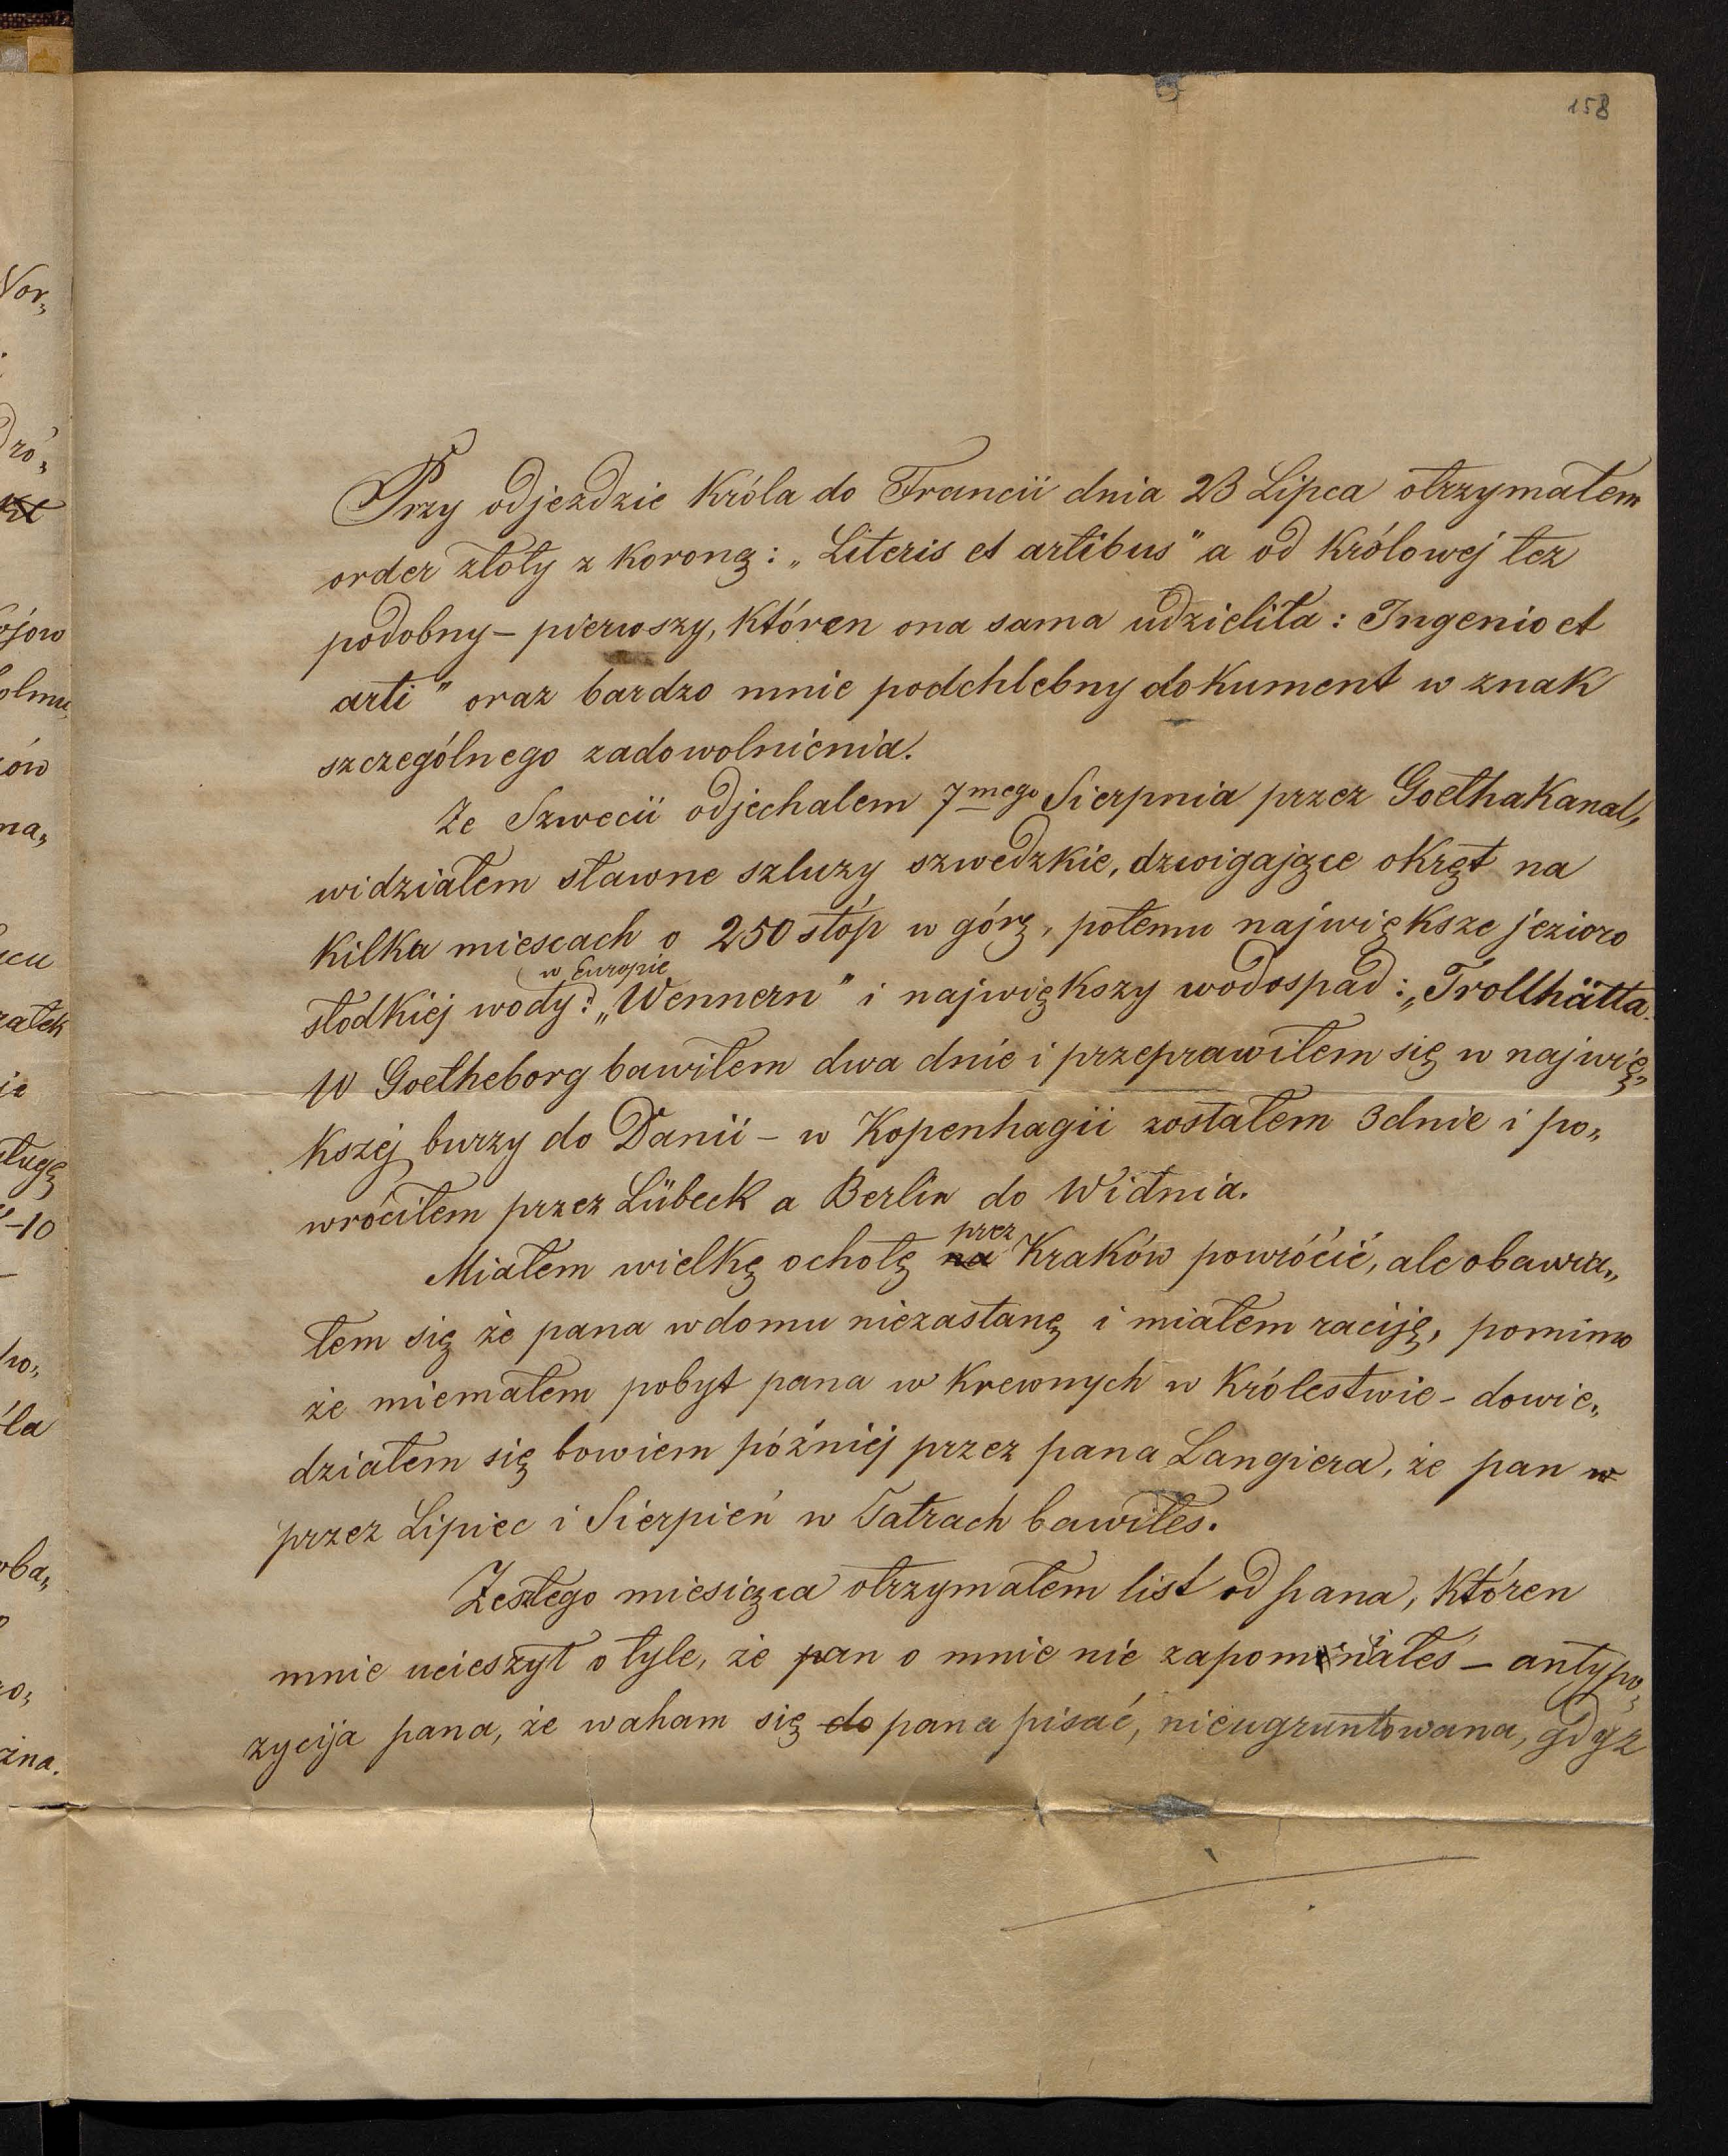 158
Przy odjezdzie Króla do Francii dnia 23 Lipca otrzymałem
order złoty z Koroną: „Literis et artibus" a od Królowej też
podobny – pierwszy, któren ona sama udzieliła: Ingenio et
arti" oraz bardzo mnie podchlebny dokument w znak
szczególnego zadowolnienia.
Ze Szwecii odjechałem 7mego Sierpnia przez GoethaKanal,
widziałem sławne szluzy szwedzkie, dzwigające okręt na
kilka miescach o 250 stóp w górę, potemu największe jezioro
w Europie
słodkiej wody: „Wennern" i największy wodospad: „Trollhätta.
W Goetheborg bawiłem dwa dnie i przeprawiłem się w najwię„
kszej burzy do Danii – w Kopenhagii zostałem 3 dnie i po„
wróciłem przez Lübeck a Berlin do Widnia.
przez
Miałem wielkę ochotę na Kraków powrócić, ale obawia„
łem się że pana w domu niezastanę i miałem raciję, pomimo
że miemałem pobyt pana w Krewnych w Królestwie – dowie„
działem się bowiem później przez pana Langiera, że pan w
przez Lipiec i Sierpień w Tatrach bawiłes.
Zeszłego miesiąca otrzymałem list od pana, któren
mnie ucieszył o tyle, że pan o mnie nie zapomniałeś – antypo„
zycija pana, że waham się do pana pisać, nieugruntowana, gdyz
Vor„
dró„
ojów
ów
na„
ratek
ie
ługę
–10
wo„
ła
oba„
ro„
żna.